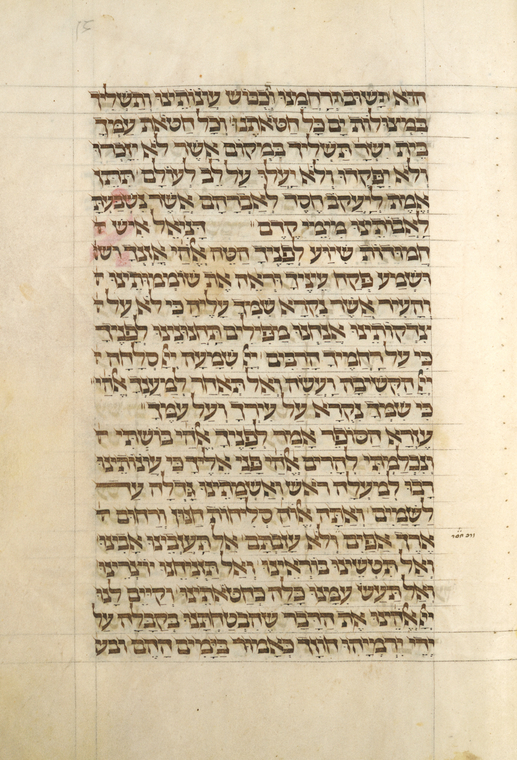 הוא תשוב תרחמנו וכבוש עונותינו ותשליך
במצולות ים כל חטאתנו וכל חטאת עמך
בית ישר תשליך במקום אשר לא יזכרו
ולא יפקדו ולא יעלו על לב לעולם תתן
אמת ליעקב חסד לאברהם אשר נשבעת
לאבותינו מימי קדם דניאל איש ח
חמודות שיוע לפניך הטה אלהי אזנך ושמ
ושמע פקח עיניך וראה את שוממותינו ו
והעיר אשר נקרא שמך עליה כי לא על צ
צדקותינו אנחנו מפילים תחנונינו לפניך
כי על רחמיך הרבים יי שמעה יי סלחה י
יי הקשיבה ועשה ואל תאחר למענך אלהי
כי שמך נקרא על עירך ועל עמך
עזרא הסופר אמר לפניך אלהי בושתי ו
ונכלמתי להרים אלהי פני אליך כי עונותינו
רבו למעלה ראש ואשמתינו גדלה עד
לשמים ואתה אלוה סליחות חנון ורחום א
ארך אפים ולא עזבתם אל תעזבינו אבינו
ורב חסד
ואל תטשינו בוראינו ואל תזניחנו יוצרינו
ואל תעש עמנו כלה בחטאתינו וקיים לנו
יי אלהינו את הדבר שהבטחתנו בקבלה על
ידי ירמיהו חוזך כאמור בימים ההם ובע